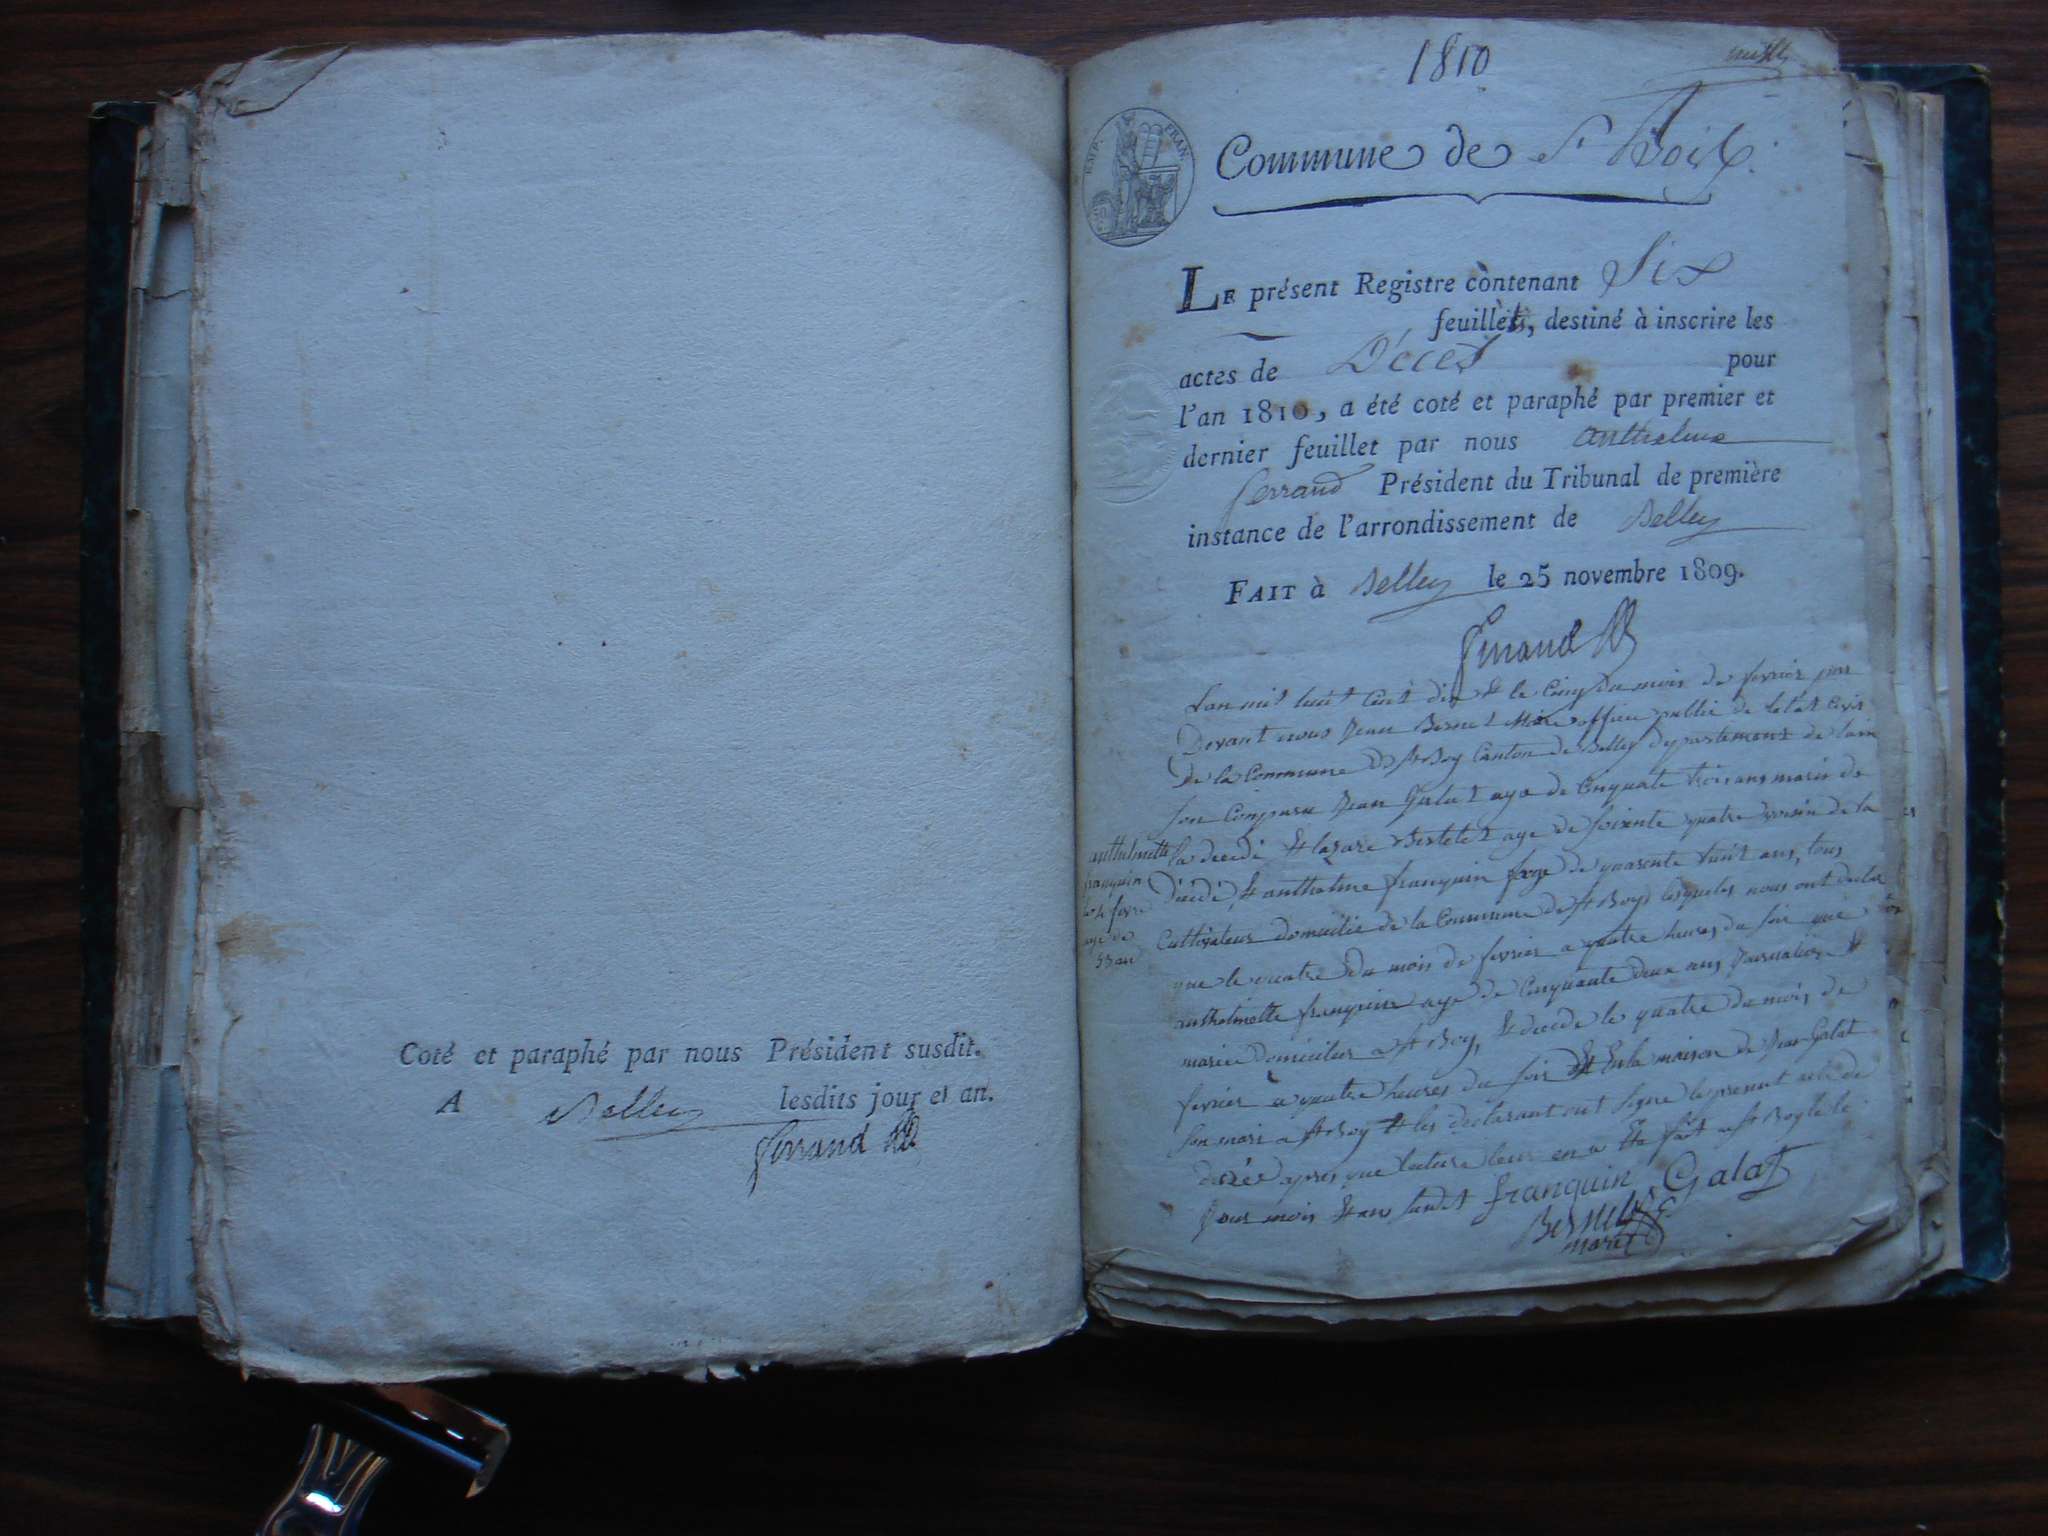 Coté et paraphé par nous Président susdit.
A Belley lesdits jour et an.
Ferrand
1810
EMP. FRAN.
Commune de St Boix.
LE présent Registre contenant Six
feuillets, destiné à inscrire les
actes de Décès pour
l'an 1810, a été coté et paraphé par premier et
dernier feuillet par nous Anthelme
Ferrand Président du Tribunal de première
instance de l'arrondissement de Belley
FAIT à Belley le 25 novembre 1809.
Ferrand
Lan mil huit cent dix & le cinq du mois de fevrier par
Devant nous Jean Bernet Maire officier public de letat civil
de la Commune de St Boy Canton de Belley departement de lain
son comparu Jean Galat age de cinquate trois ans maris de
la decedé & lazare Bertetet age de soixente quatre voisin de la
Décédé, & anthelme franquin age de quarente huit ans, tous
Cultivateur domicilié de la Commune de St Boys lesquels nous ont declar
que le quatre du mois de fevrier a quatre heures du soir que
anthelmette franquin age de cinquante deux ans Journaliere &
mariée domicilier a St Boy, & decede le quatre du mois de
fevrier a quatre heures du soir & En la maison de Jean Galat
son mari a St Boy & les declarant ont signe le present acte de
decée apres que lecture leur en a Eté fait a St Boy le
Jour mois & an susdit franquin Galat
Bernet
maire
anthelmette
franquin
le 4 fevre
age de
53 an